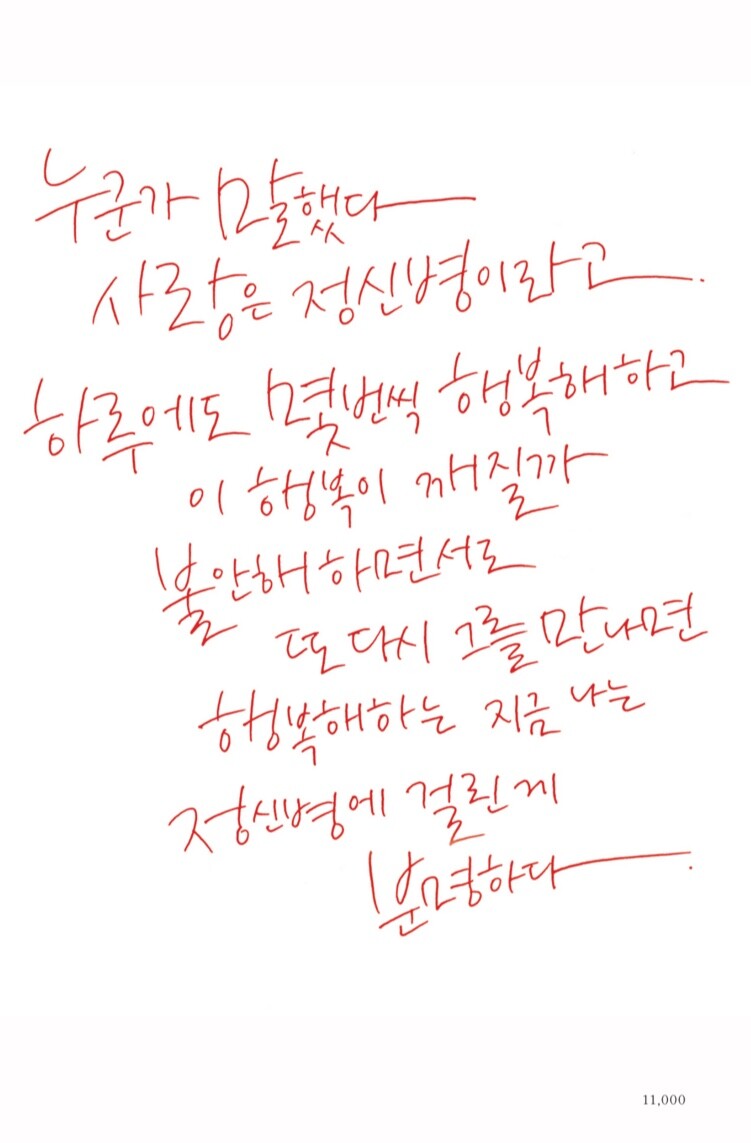 누군가 말했다
사랑은 정신병이라고.
하루에도 몇번씩 행복해하고
이 행복이 깨질까
불안해하면서도
또 다시 그를 만나면
행복해하는 지금 나는
정신병에 걸린게
분명하다.
11,000